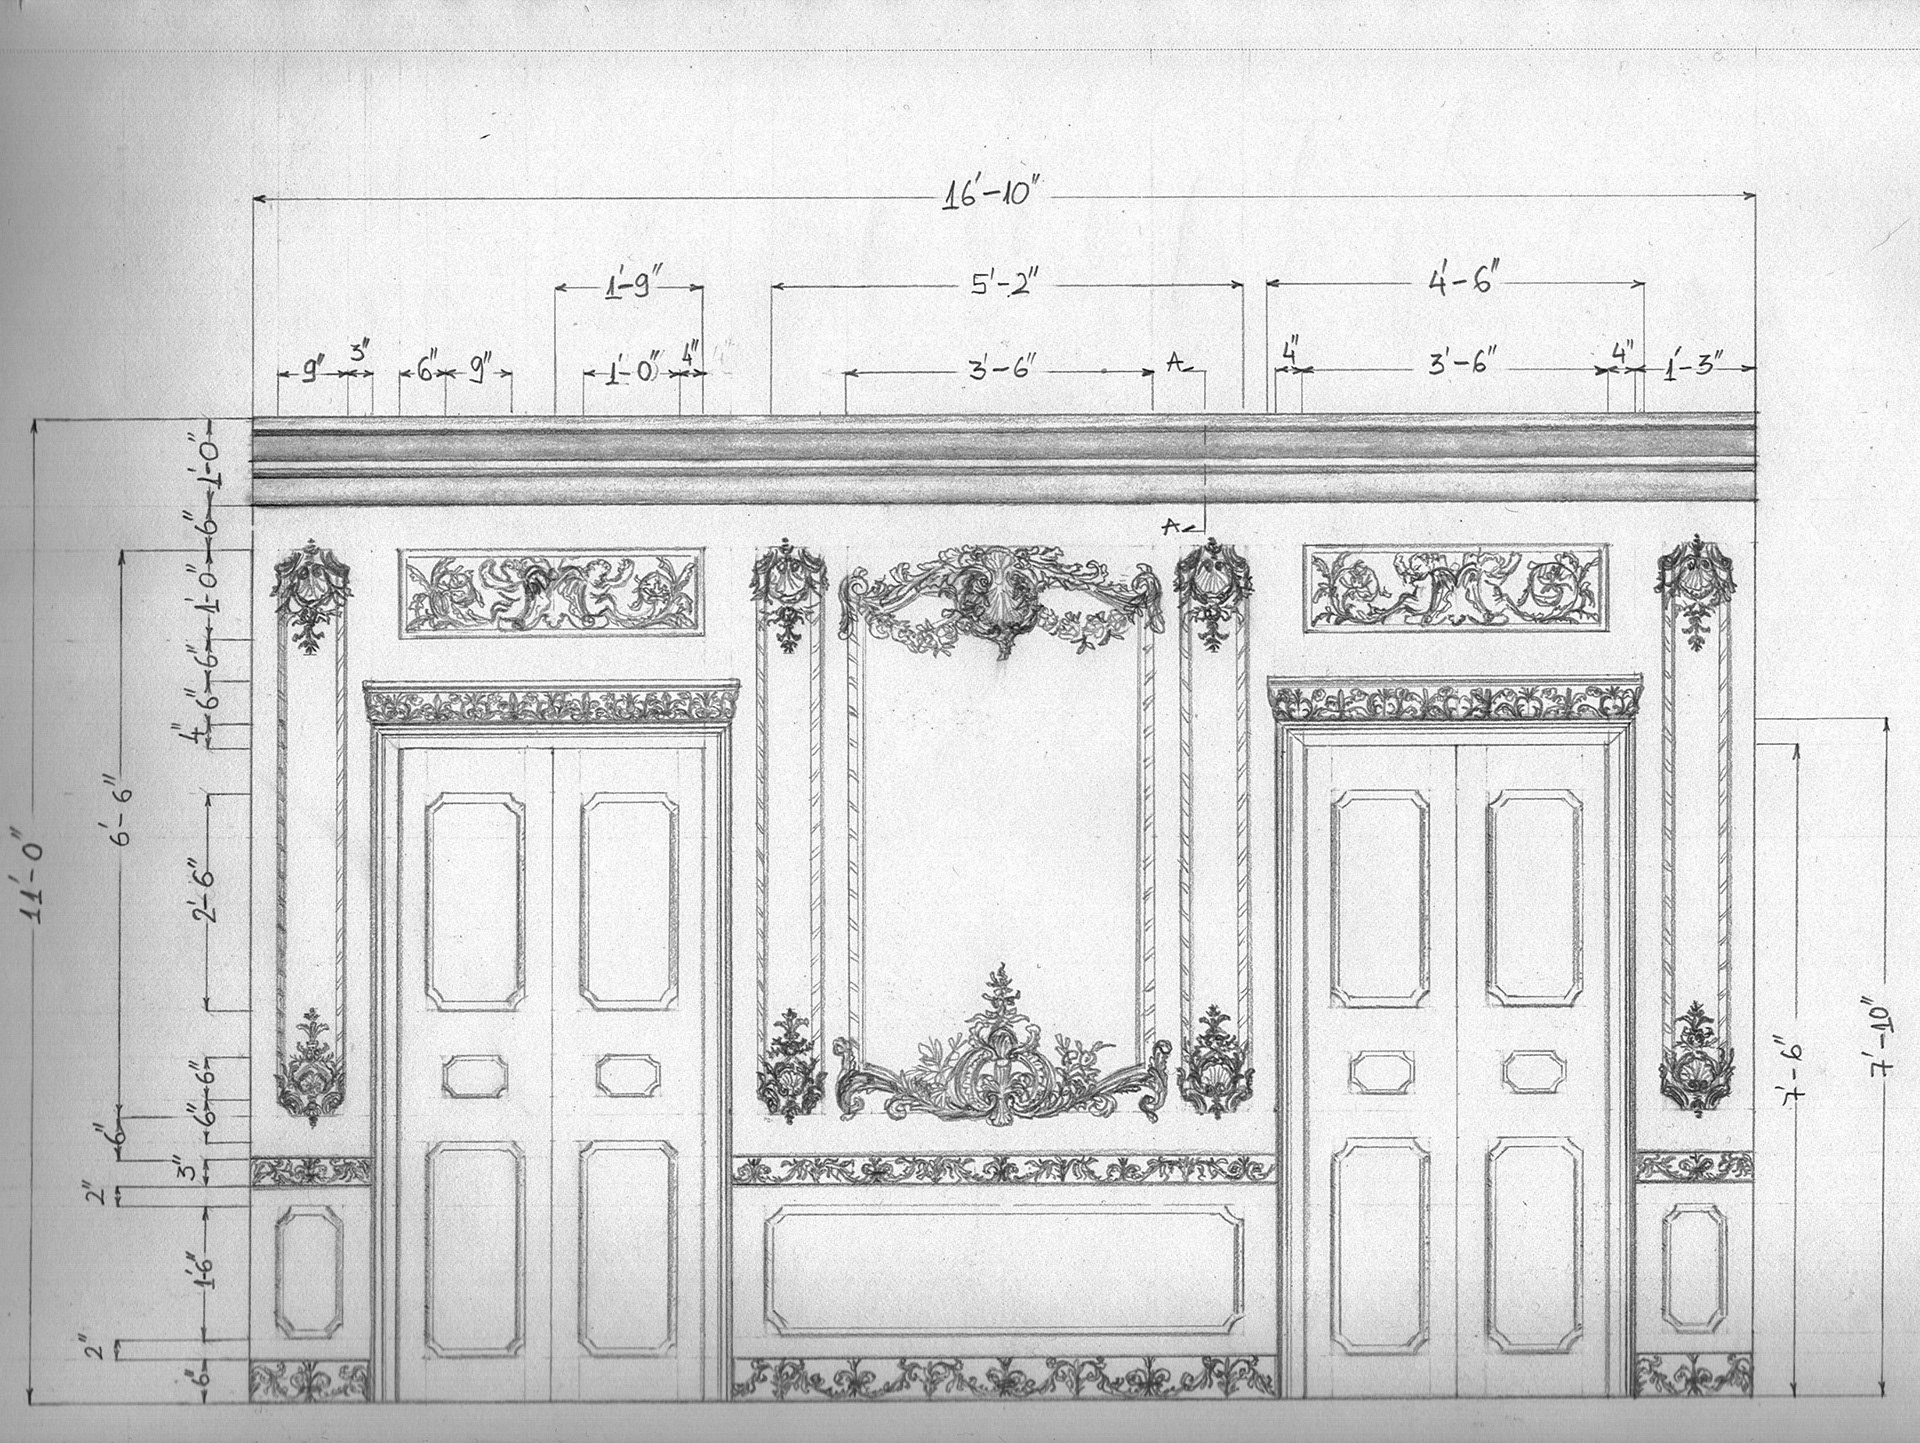 16'-10"
1'-9" 5'-2" 4'-6"
9" 3" 6" 9" 1'-0" 4" 3'-6" A 4" 3'-6" 4" 1'-3"
A
11'-0"
6'-6"
6"
2"
2"
1'-0"
6"
1'-0"
6"
6"
4"
2'-6"
6"
6"
3"
1'-6"
6"
7'-6"
7'-10"